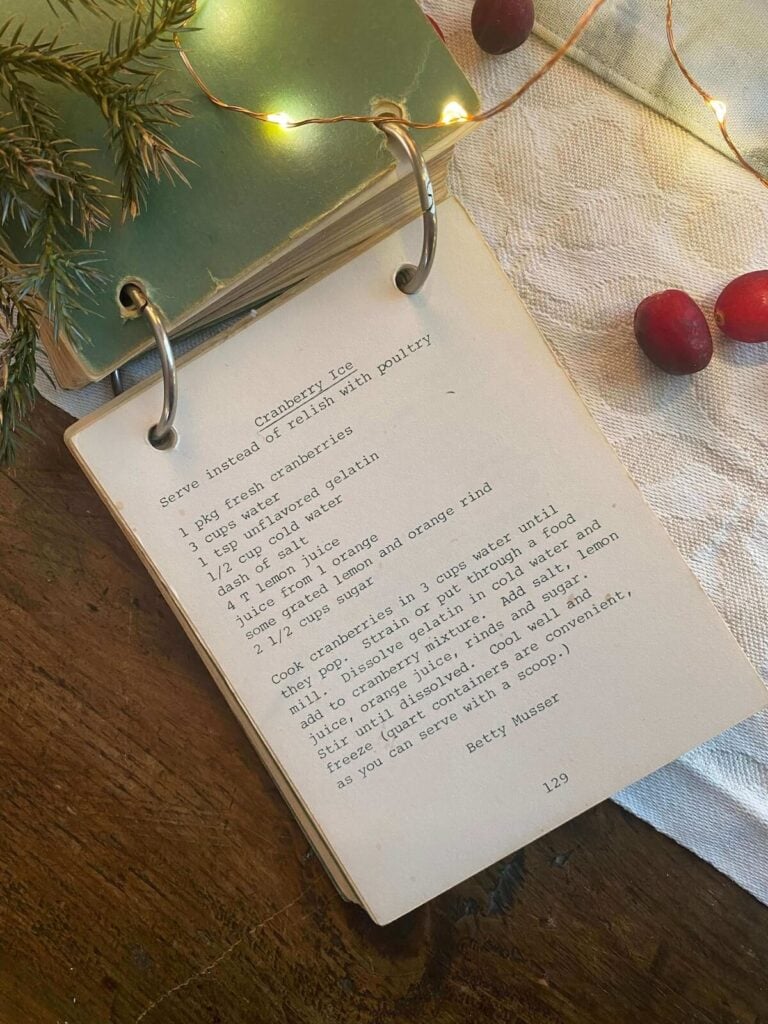 Cranberry Ice
Serve instead of relish with poultry
1 pkg fresh cranberries
3 cups water
1 tsp unflavored gelatin
1/2 cup cold water
dash of salt
4 T lemon juice
juice from 1 orange
some grated lemon and orange rind
2 1/2 cups sugar
Cook cranberries in 3 cups water until
they pop. Strain or put through a food
mill. Dissolve gelatin in cold water and
add to cranberry mixture. Add salt, lemon
juice, orange juice, rinds and sugar.
Stir until dissolved. Cool well and
freeze (quart containers are convenient,
as you can serve with a scoop.)
Betty Musser
129